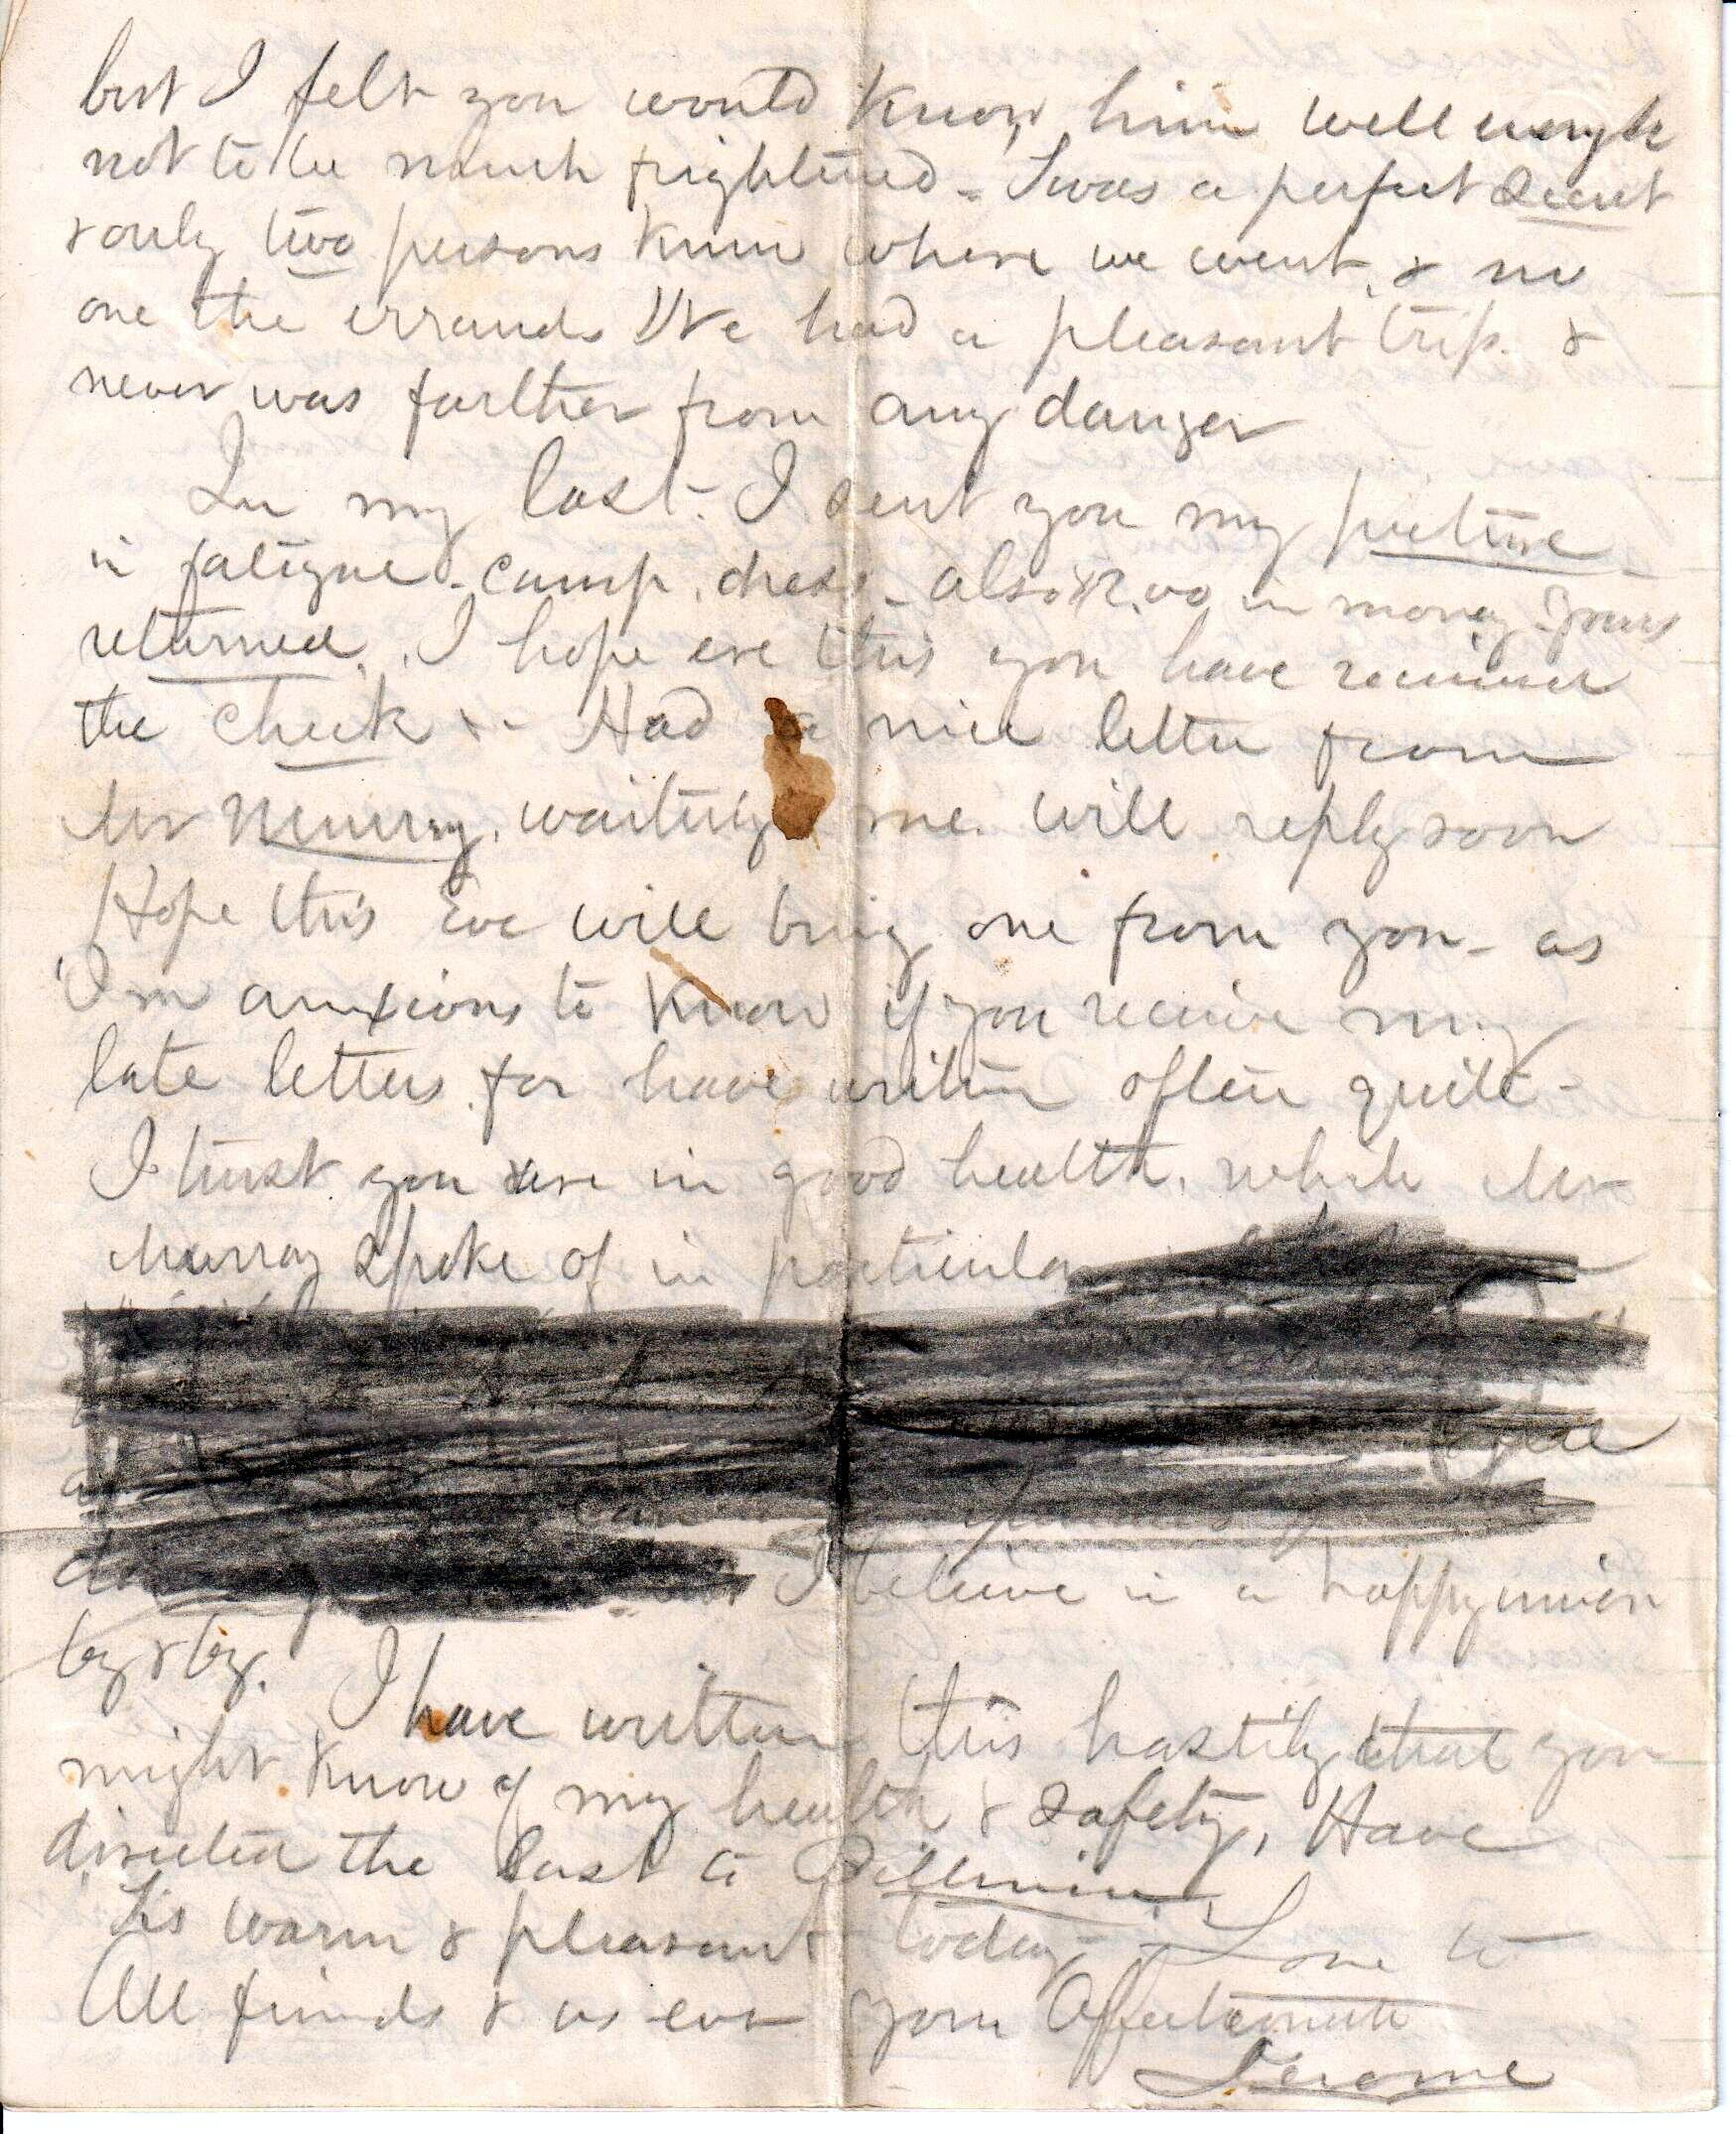 but I felt you would know him well enough
not to be much frightened - Twas a perfect secret
& only two persons knew where we went, & no
one the errands We had a pleasant trip. &
never was farther from any danger
In my last - I sent you my picture
in fatigue - camp, dress - also $2.00 in money - yours
returned. I hope ere this you have received
the check - Had a nice letter from
Mr Murray, waiting me. Will reply soon
Hope this Eve will bring one from you - as
I'm anxious to know if you receive my
late letters. for have written often quite -
I trust you are in good health. while Mr
Murray spoke of in particular
I believe in a happy union
by & by. I have written this hastily that you
might know of my health & safety, Have
directed the last to
Tis warm & pleasant today - Love to
All friends & as ever your Affectionate
Jerome